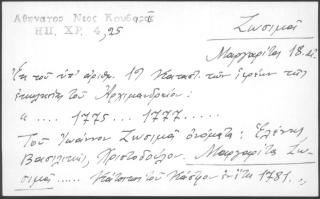 Αθηναγος Νεος Κουβαρᾶ
ΗΠ, ΧΡ, 4, 25
Ζωσιμᾶ
Μαργαρίτα 18 αἰ.
Ἐκ τοῦ ὑπ' ἀριθμ. 19 Καταστ. τῶν ἱερέων τῆς
ἐκκλησίας τοῦ Ἀρχιμανδρείου:
« .... 1775 ... 1777 .....
Τοῦ Ἰωάννου Ζωσιμᾶ ὀνόματα: Ἑλένης
Βασιλικῆς, Χριστοδούλου. Μαργαρίτα Ζω-
σιμᾶ ...... τοῦ Κάστρου 1781.,,